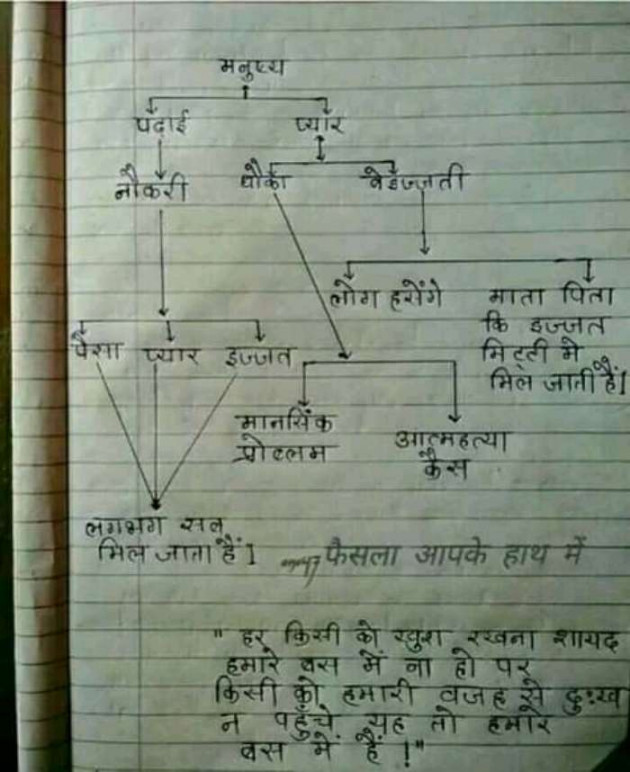 मनुष्य
पढाई प्यार
नौकरी धौका बेइज्जती
लोग हसेंगे माता पिता
कि इज्जत
मिट्टी मे
मिल जाती हैं।
पैसा प्यार इज्जत
मानसिक
प्रोब्लम
आत्महत्या
कैस
लगभग सब
मिल जाता हैं।
फैसला आपके हाथ में
" हर किसी को खुश रखना शायद
हमारे बस में ना हो पर
किसी को हमारी वजह से दुःख
न पहुँचे यह तो हमारे
बस में हैं !"